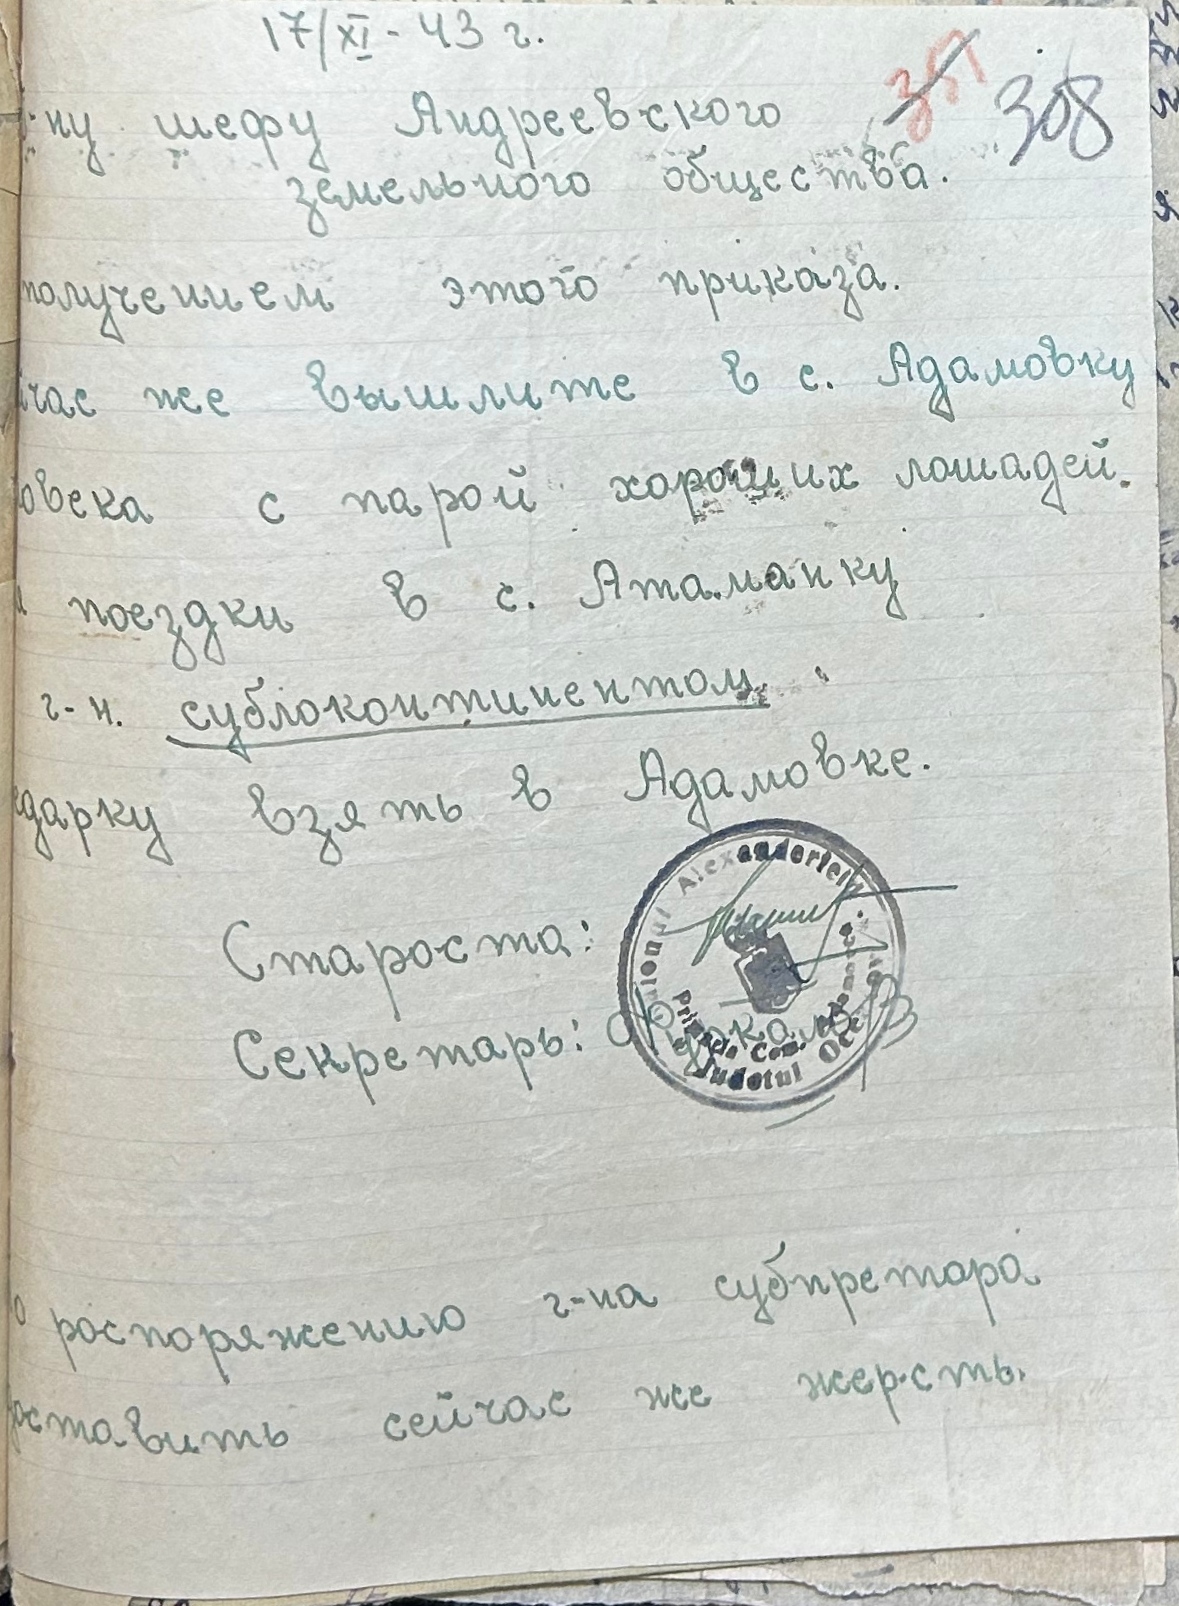 17/XI - 43 г.
308
-ну шефу Андреевского
земельного общества.
получением этого приказа.
час же вышлите в с. Адамовку
овека с парой хороших лошадей.
поездки в с. Атаманку
г-н. сублоконтинентом
едарку взять в Адамовке.
Староста:
Секретарь:
Raionul Alexanderfeld
Primaria Com.
Judetul Oceacov
о роспоряжению г-на субпретора
оставить сейчас же жерсть.